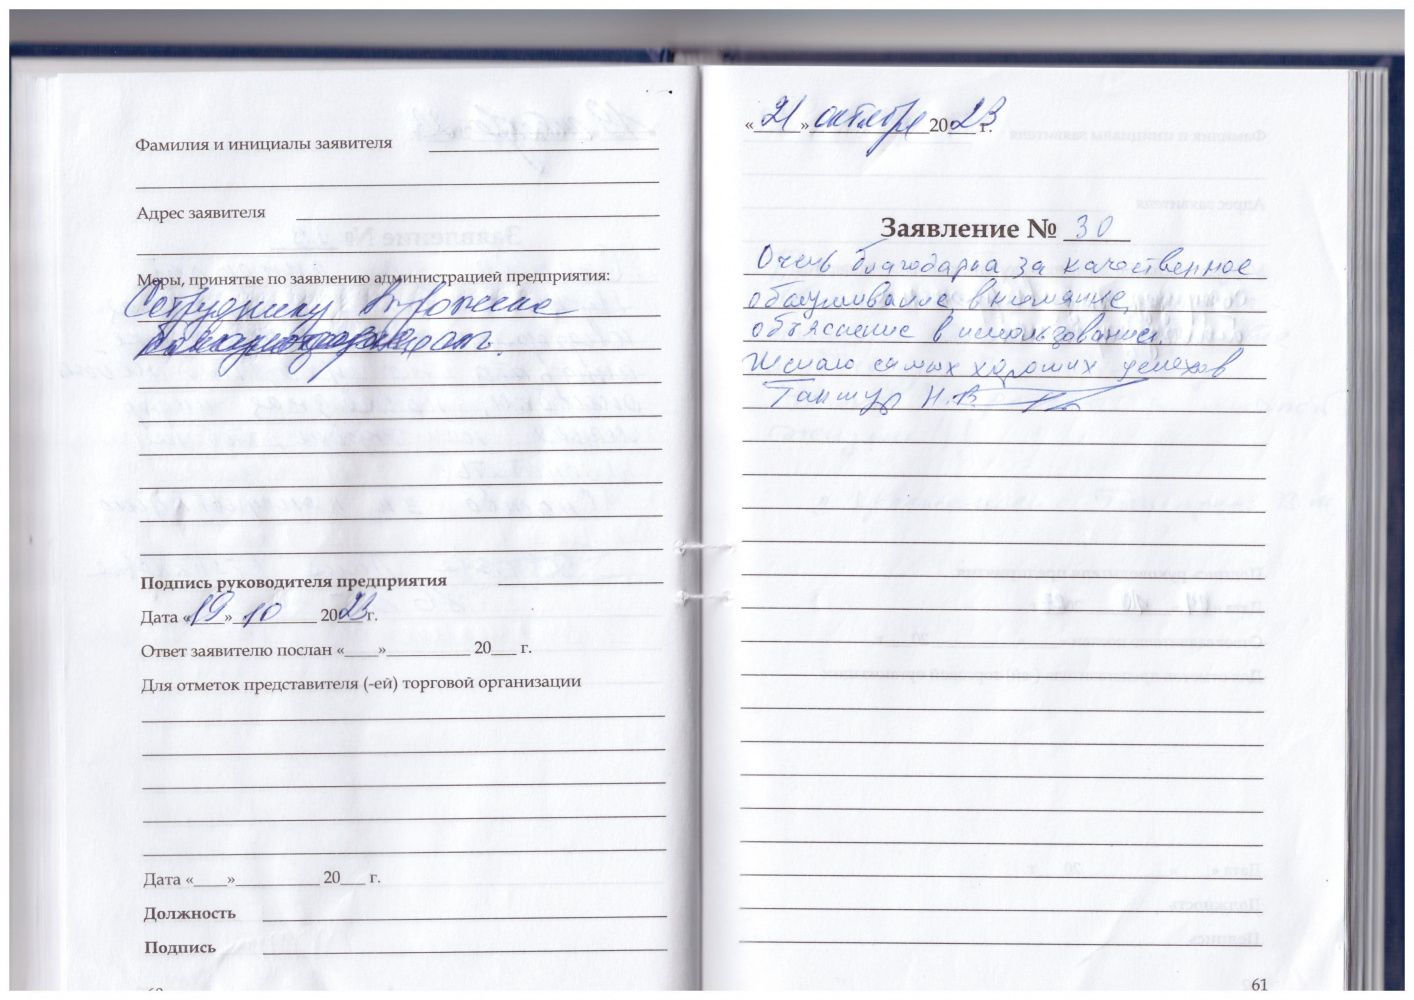 Фамилия и инициалы заявителя
Адрес заявителя
Меры, принятые по заявлению администрацией предприятия:
Сотруднику
Подпись руководителя предприятия
Дата «19» 10 2023 г.
Ответ заявителю послан «____»__________ 20___ г.
Для отметок представителя (-ей) торговой организации
Дата «____»__________ 20___ г.
Должность
Подпись
«21» октября 2023 г.
Заявление № 30
Очень благодарна за качественное
обслуживание, внимание,
объяснение в использовании.
Желаю самых хороших успехов
Танцур Н.В
61